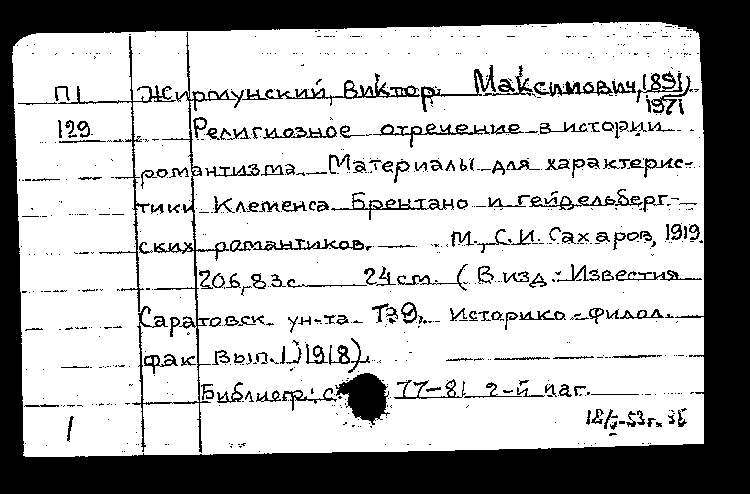 П1 Жирмунский, Виктор Максимович, 1891
129 1971
Религиозное отречение в истории
романтизма. Материалы для характерис-
тики Клеменса Брентано и гейдельберг-
ских романтиков. — М., С.И. Сахаров, 1919.
206, 83 с. 24 см. (В изд.: Известия
Саратовск. ун-та Историко-филол.
фак Вып. 1) 1918).
Библиогр: с 77-81 2-й паг.
1